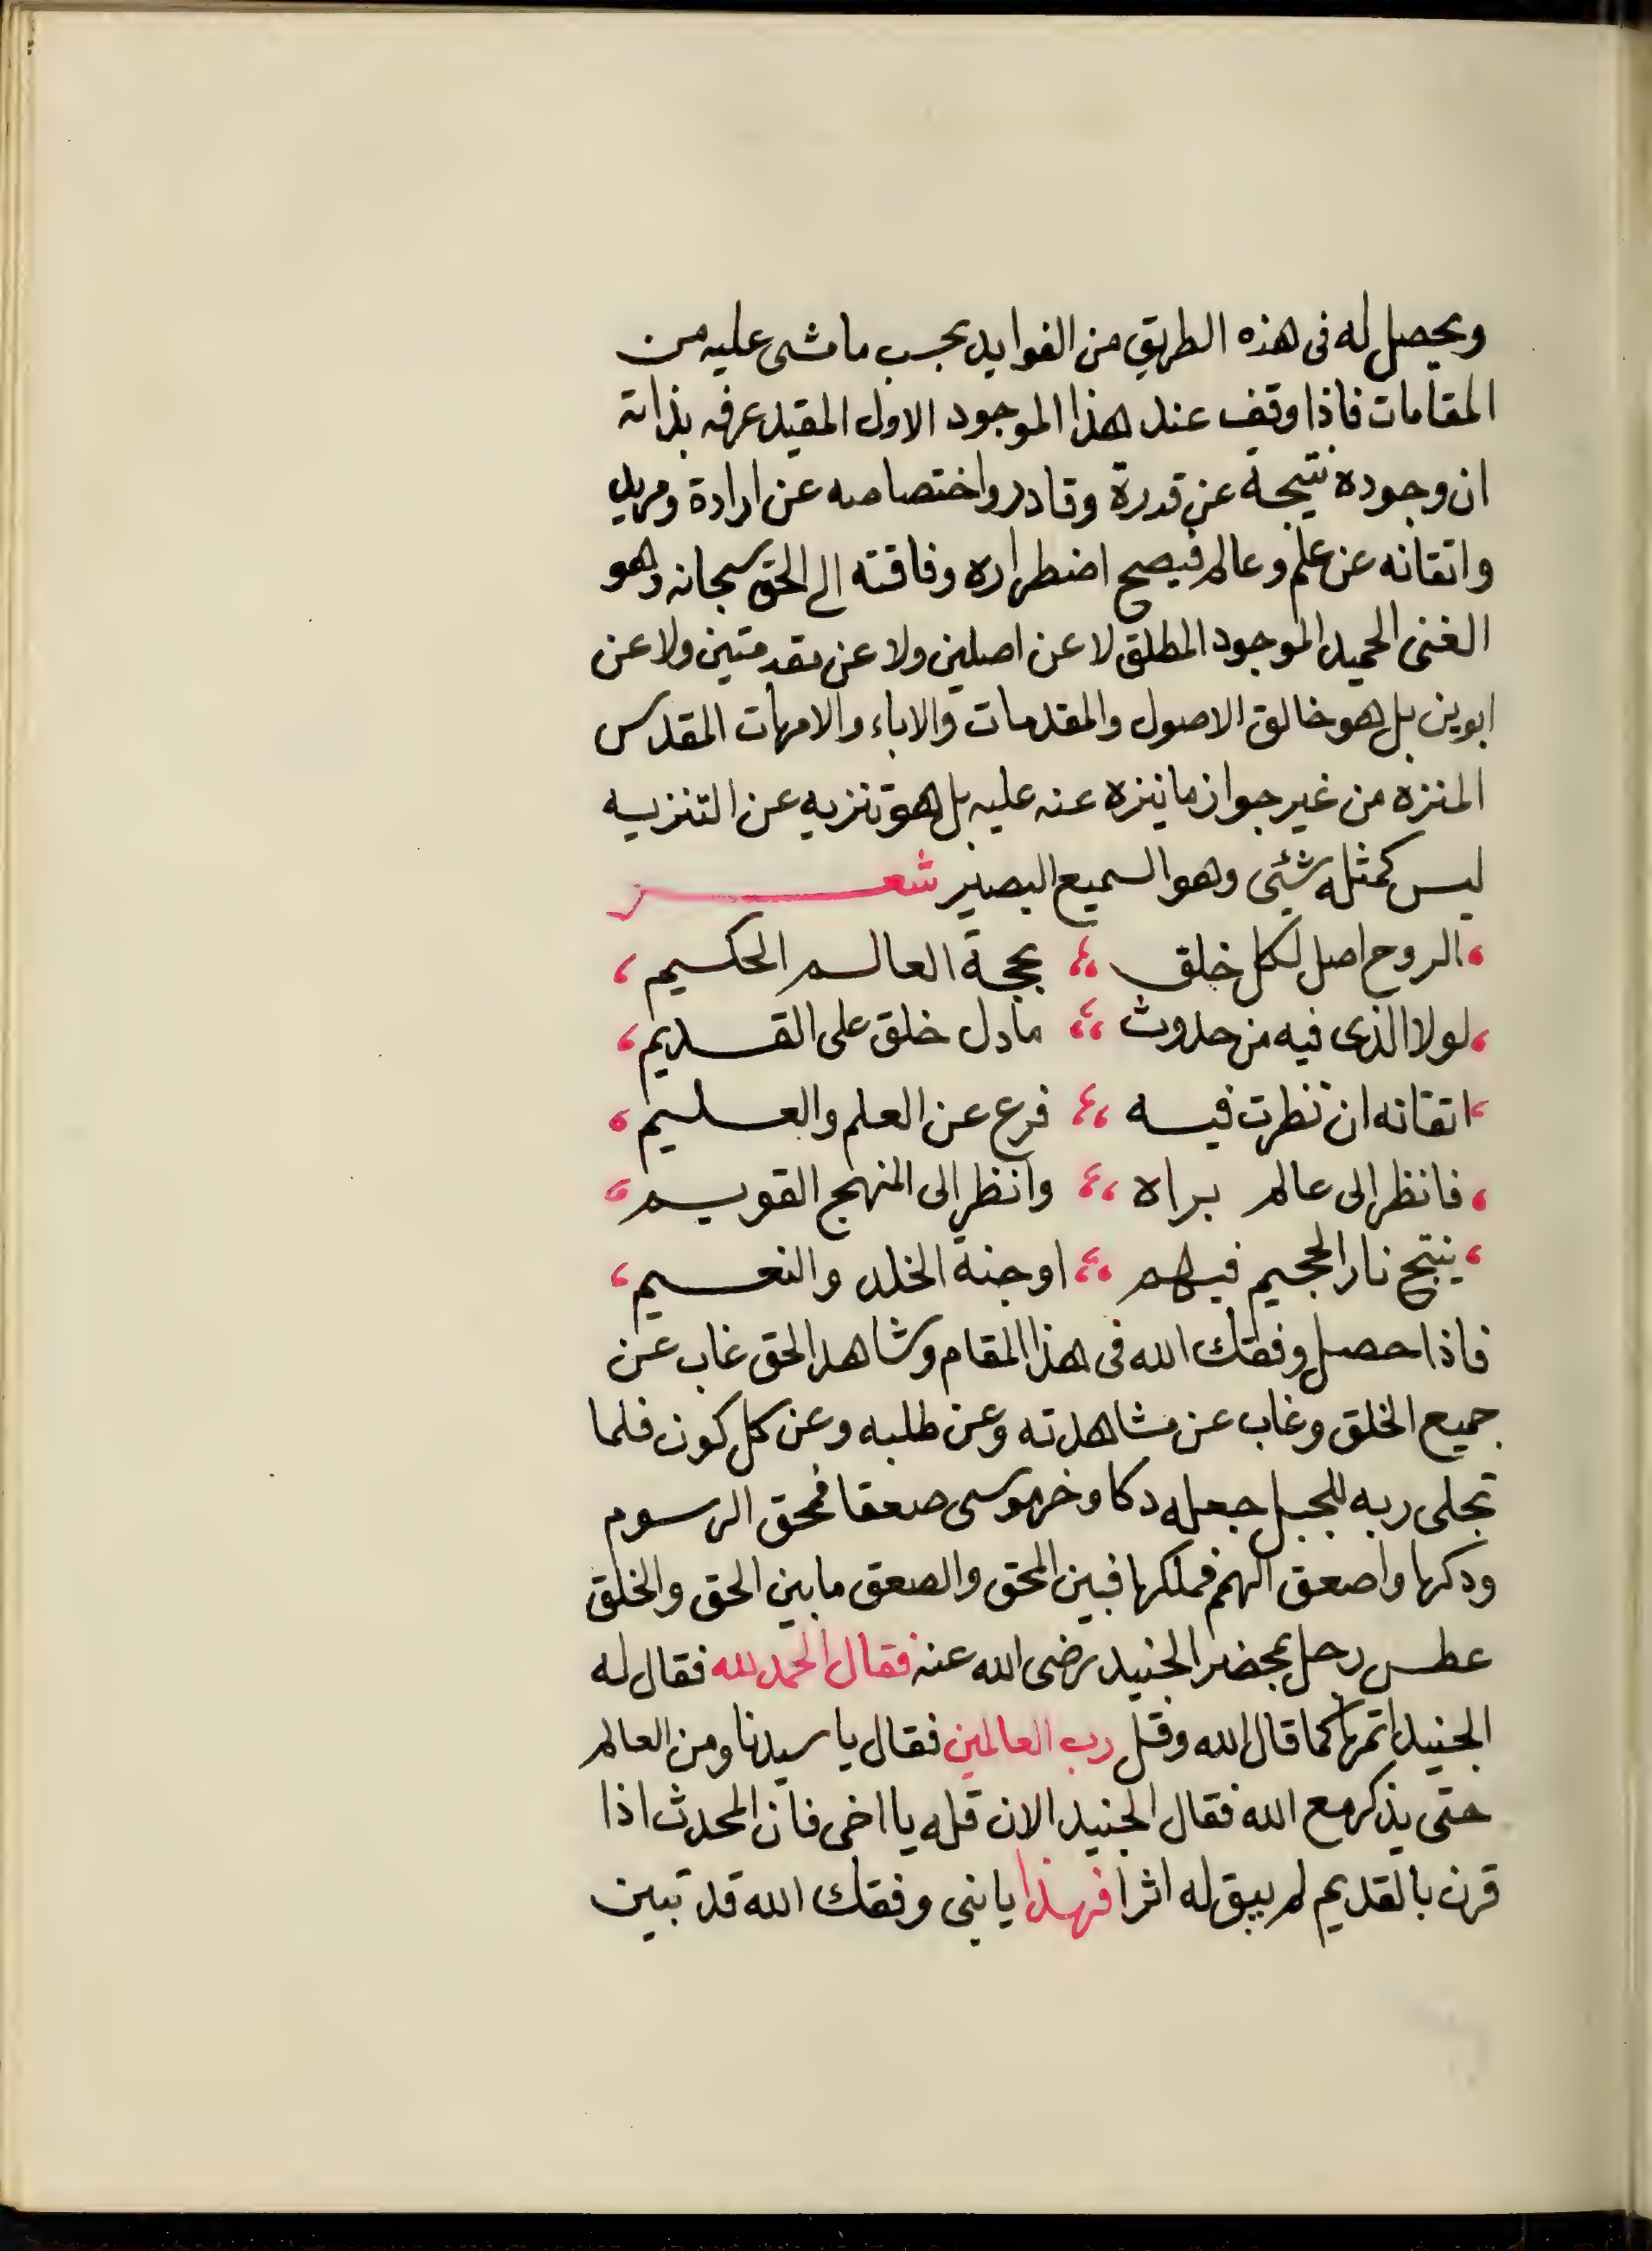 ويحصل له فى هذه الطريق من الفوايد بحسب ما مشى عليه من
المقامات فاذا وقف عند هذا الموجود الاول المقيد عرفه بذاته
ان وجوده نتيجة عن قدرة وقادر واختصاصه عن ارادة ومريد
واتقانه عن علم وعالم فيصح اضطراره وفاقته الى الحق سبحانه وهو
الغنى الحميد الموجود المطلق لا عن اصلين ولا عن مقدمتين ولا عن
ابوين بل هو خالق الاصول والمقدمات والاباء والامهات المقدس
المنزه من غير جواز ما ينزه عنه عليه بل هو تنزيه عن التنزيه
ليس كمثله شئى وهو السميع البصير شعر
الروح اصل لكل خلق ،، بحجة العالم الحكيم ،
، لولا الذى فيه من حدوث ،، ما دل خلق على القديم ،
، اتقانه ان نظرت فيه ،، فرع عن العلم والعليم ،
، فانظر الى عالم براه ،، وانظر الى المنهج القويم ،
، ينتج نار الجحيم فيهم ،، او جنة الخلد والنعيم ،
فاذا حصل وفقك الله فى هذا المقام وشاهد الحق غاب عن
جميع الخلق وغاب عن مشاهدته وعن طلبه وعن كل كون فلما
تجلى ربه للجبل جعله دكا وخر موسى صعقا فمحق الرسوم
ودكها واصعق الهمم فملكها فبين المحق والصعق ما بين الحق والخلق
عطس رجل بمحضر الجنيد رضى الله عنه فقال الحمد لله فقال له
الجنيد اتمها كما قال الله وقل رب العالمين فقال يا سيدنا ومن العالم
حتى يذكر مع الله فقال الجنيد الان قله يا اخى فان المحدث اذا
قرن بالقديم لم يبق له اثرا فهذا يا بنى وفقك الله قد تبين